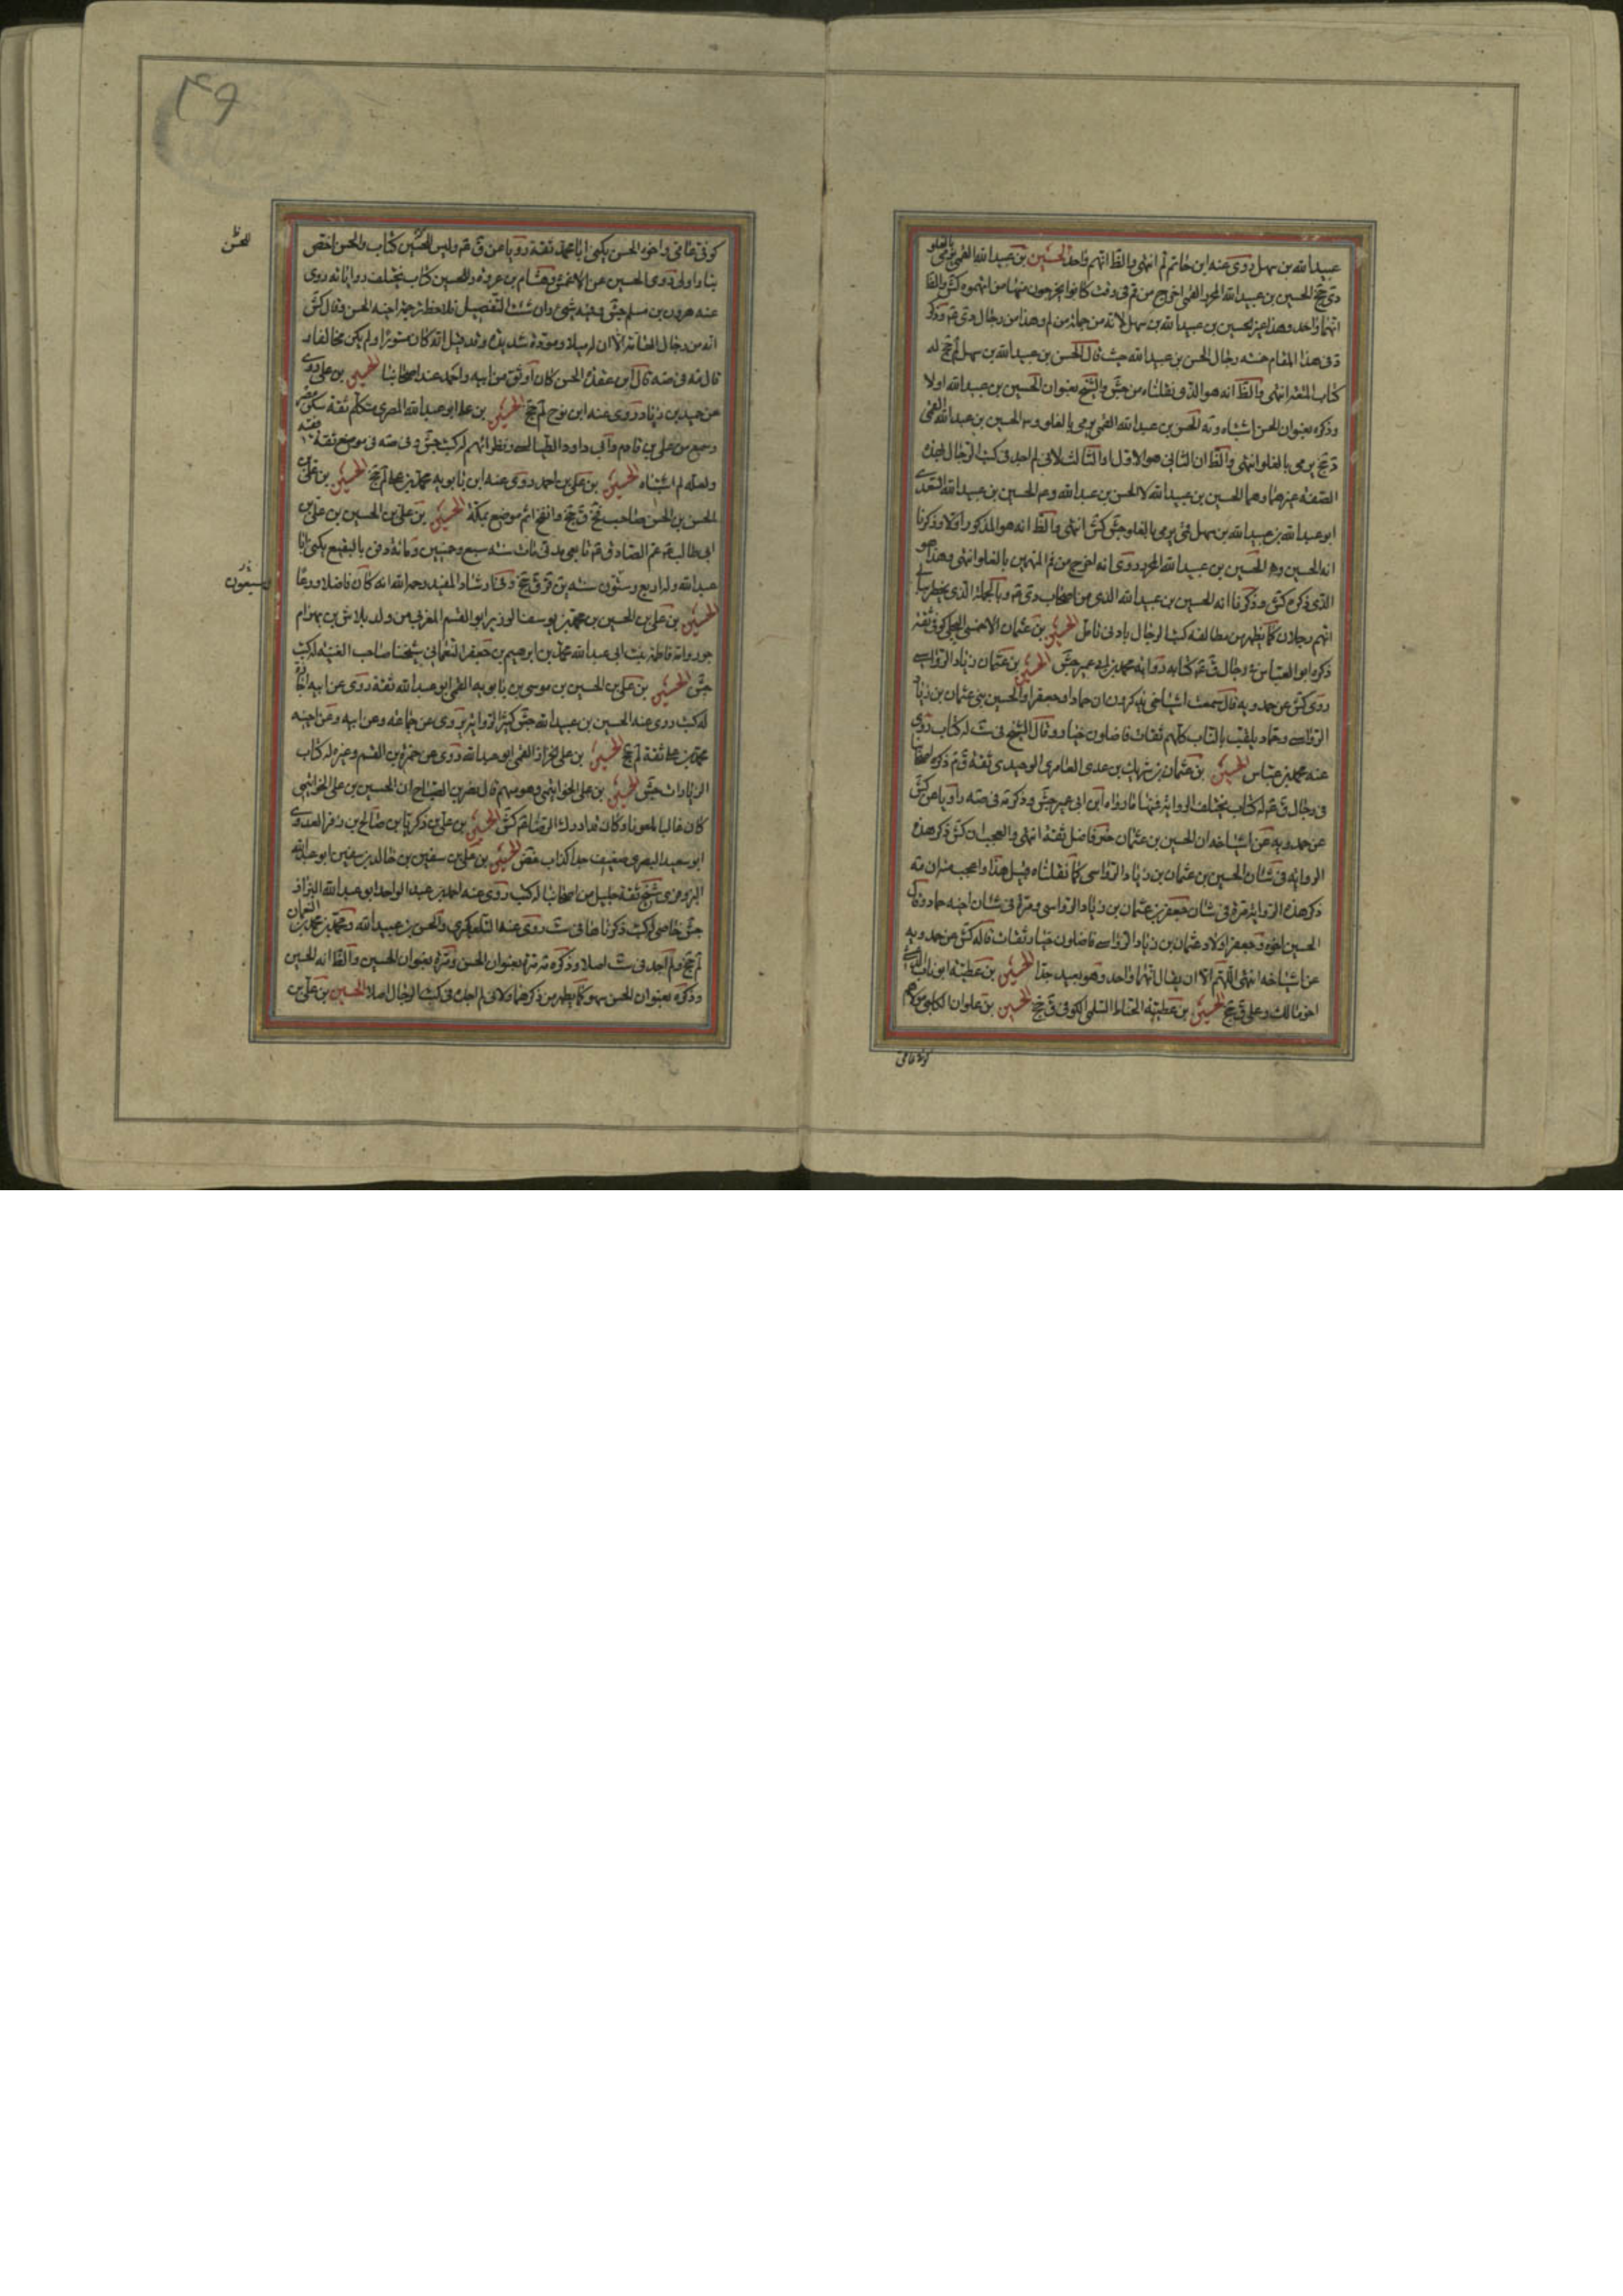 عبيد الله بن سهل روى عنه ابن حاتم لم انتهى والظ انهم واحد الحسين بن عبيد الله القمي يرمى بالغلو
دى جخ الحسين بن عبيد الله المحرر القمي اخرج من قم في وقت كانوا يخرجون منها من اتهموه كش والظ
انهما واحد وهذا غير الحسين بن عبيد الله بن سهل لانه من جملة من لم وهذا من رجال دى
في هذا المقام رجال الحسن بن عبيد الله حيث قال الحسن بن عبيد الله بن سهل لم جخ له
كتاب المتعة انتهى والظ انه هو الذى نقلناه من جش والشيخ بعنوان الحسين بن عبيد الله اولا
وذكره بعنوان الحسن اشتباه الحسن بن عبد الله القمي يرمى بالغلو الحسين بن عبيد الله القمي
جخ يرمى بالغلو انتهى والظ ان الثاني هو الاول والثالث لاني لم اجد في كتب الرجال بهذه
الصفة غيرهما وهما الحسين بن عبيد الله لا الحسن بن عبد الله الحسين بن عبيد الله السعدي
ابو عبد الله بن عبيد الله بن سهل ممن يرمى بالغلو جش كش انتهى والظ انه هو المذكور اولا وذكرنا
انه الحسين الحسين بن عبيد الله المحرر روى انه اخرج من قم المتهمين بالغلو انتهى وهذا هو
الذى ذكره كش وذكرنا انه الحسين بن عبيد الله الذى من اصحاب دى وبالجملة الذى يخطر ببالي
انهم رجلان كما يظهر من مطالعة كتب الرجال بادنى تامل الحسين بن عثمان الاحمسي البجلي كوفي ثقة
ذكره ابو العباس في رجال ق كتابه رواية محمد بن ابي عمير جش الحسين بن عثمان زياد الرواسي
روى كش عن حمدويه قال سمعت اشياخي يذكرون ان حمادا وجعفرا والحسين بني عثمان بن زياد
الرواسي وحماد يلقب بالناب كلهم ثقات فاضلون خيار وقال الشيخ في ست له كتاب روى
عنه محمد بن عياش الحسين بن عثمان بن شريك بن عدى العامري الوحيدي ثقة ذكره اصحابنا
في رجال ق له كتاب يختلف الرواية فيها ما رواه ابن ابي عمير جش وذكره في صه راويا عن كش
عن حمدويه عن اشياخه ان الحسين بن عثمان خير فاضل ثقة انتهى والعجب ان كش ذكر هذه
الرواية في شان الحسين بن عثمان بن زياد الرواسي كما نقلناه قبل هذا واعجب منه ان
ذكر هذه الرواية مرة في شان جعفر بن عثمان بن زياد الرواسي ومرة في شان اخيه حماد وقال
الحسين اخوه وجعفر اولاد عثمان بن زياد الرواسي فاضلون خيار ثقات قاله كش عن حمدويه
عن اشياخه انتهى اللهم الا ان يقال انهما واحد وهو بعيد جدا الحسين بن عطية ابو ناب
اخو مالك وعلي ق جخ الحسين بن عطية الحناط السلمي الكوفي ق جخ الحسين بن علوان الكلبي مولاهم
كوفي عامي
كوفي عامي واخوه الحسن يكنى ابا محمد ثقة رويا عن ق وليس للحسين كتاب والحسن اخص
بنا واولى روى الحسين عن الاعمش وهشام بن عروة وللحسين كتاب يختلف رواياته روى
عنه هرون بن مسلم جش وفيه شيء وان شئت التفصيل فلاحظ ترجمة اخيه الحسن وقال كش
انه من رجال العامة الا ان له ميلا ومودة شديدة وقد قيل انه كان مستورا ولم يكن مخالفا
قال في صه قال ابن عقدة الحسن كان اوثق من ابيه واحمد عند اصحابنا الحسين بن علي روى
عن حميد بن زياد روى عنه ابن نوح لم جخ الحسين بن علي ابو عبد الله المصري متكلم ثقة سكن مصر
وسمع من علي بن قادم وابي داود الطيالسي ونظرائهم له كتب جش وفي صه في موضع ثقة فقيه
ولعله اشتباه الحسين بن علي بن احمد روى عنه ابن بابويه محمد بن علي لم جخ الحسين بن علي بن
الحسن بن الحسن صاحب فخ ق جخ والفخ اسم موضع بمكة الحسين بن علي بن الحسين بن علي بن
ابي طالب عم الصادق تابعي مدني مات سنة سبع وخمسين ومائة ودفن بالبقيع يكنى ابا
عبد الله وله اربع وستون سنة ق جخ وفي ارشاد المفيد رحمه الله انه كان فاضلا ورعا
الحسين بن علي بن الحسين بن محمد بن يوسف الوزير ابو القسم المغربي من ولد بلاش بن بهرام
جور وامه فاطمة بنت ابي عبد الله محمد بن ابرهيم بن جعفر النعماني شيخنا صاحب الغيبة له كتب
جش الحسين بن علي بن الحسين بن موسى بن بابويه القمي ابو عبد الله ثقة روى عن ابيه اجازة
له كتب روى عنه الحسين بن عبيد الله جش كثير الرواية يروى عن جماعة وعن ابيه وعن اخيه
محمد بن علي ثقة لم جخ الحسين بن علي الخزاز القمي ابو عبد الله روى عن حمزة بن القسم وغيره له كتاب
الزيارات جش الحسين بن علي الخواتيمي وهو متهم قال نصر بن الصباح ان الحسين بن علي الخواتيمي
كان غاليا ملعونا وكان قد ادرك الرضا كش الحسين بن علي بن زكريا بن صالح بن زفر العدوي
ابو سعيد البصري ضعيف جدا كذاب غض الحسين بن علي بن سفين بن خالد بن سفين ابو عبد الله
البزوفري شيخ ثقة جليل من اصحابنا له كتب روى عنه احمد بن عبد الواحد ابو عبد الله البزاز
جش خاصي له كتب ذكرناها في ست روى عنه التلعكبري والحسن بن عبيد الله ومحمد بن محمد بن النعمان
لم جخ ولم اجد في ست اصلا وذكره مرة بعنوان الحسن ومرة بعنوان الحسين والظ انه الحسين
وذكره بعنوان الحسن سهو كما يظهر من ذكرهما ولاني لم اجده في كتب الرجال اصلا الحسين بن علي بن